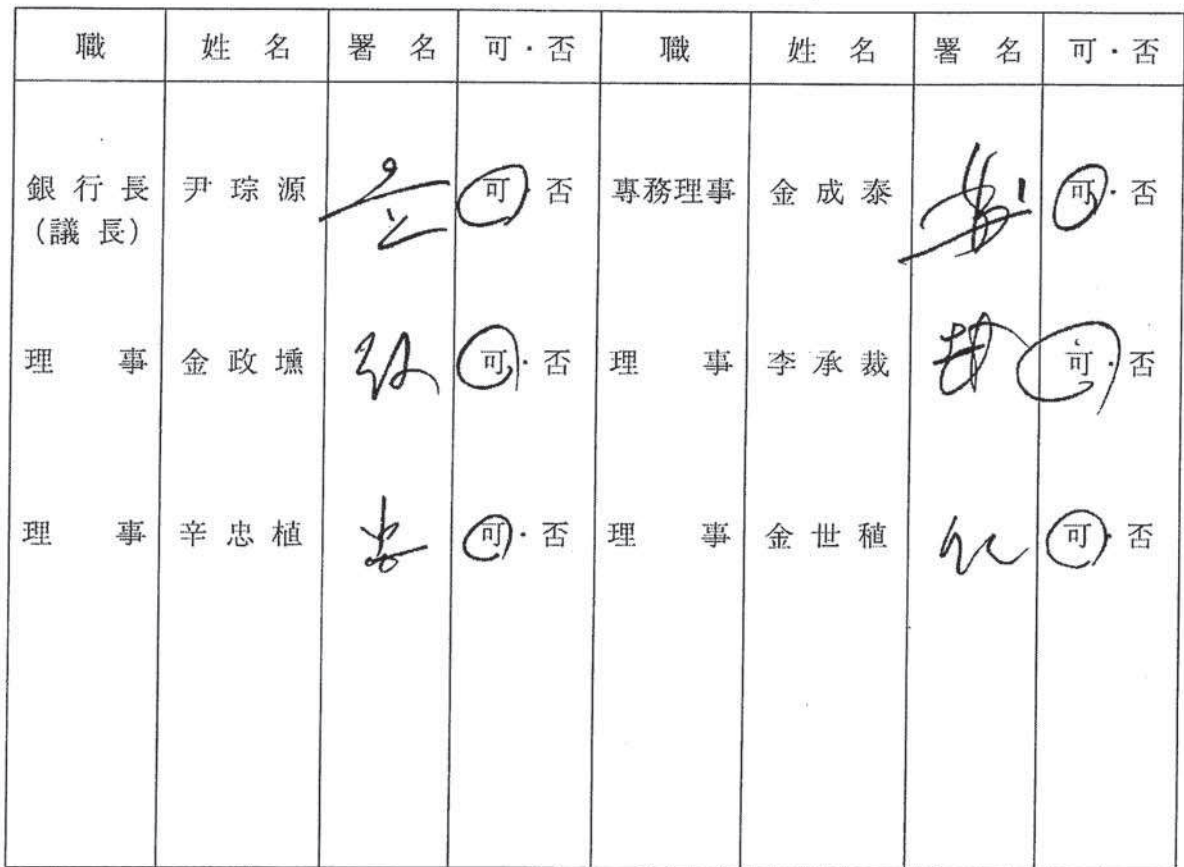 職 姓 名 署 名 可·否 職 姓 名 署 名 可·否
銀 行 長 尹 琮 源 可·否 專務理事 金 成 泰 可·否
(議 長)
理 事 金 政 壎 可·否 理 事 李 承 裁 可·否
理 事 辛 忠 植 可·否 理 事 金 世 稙 可·否